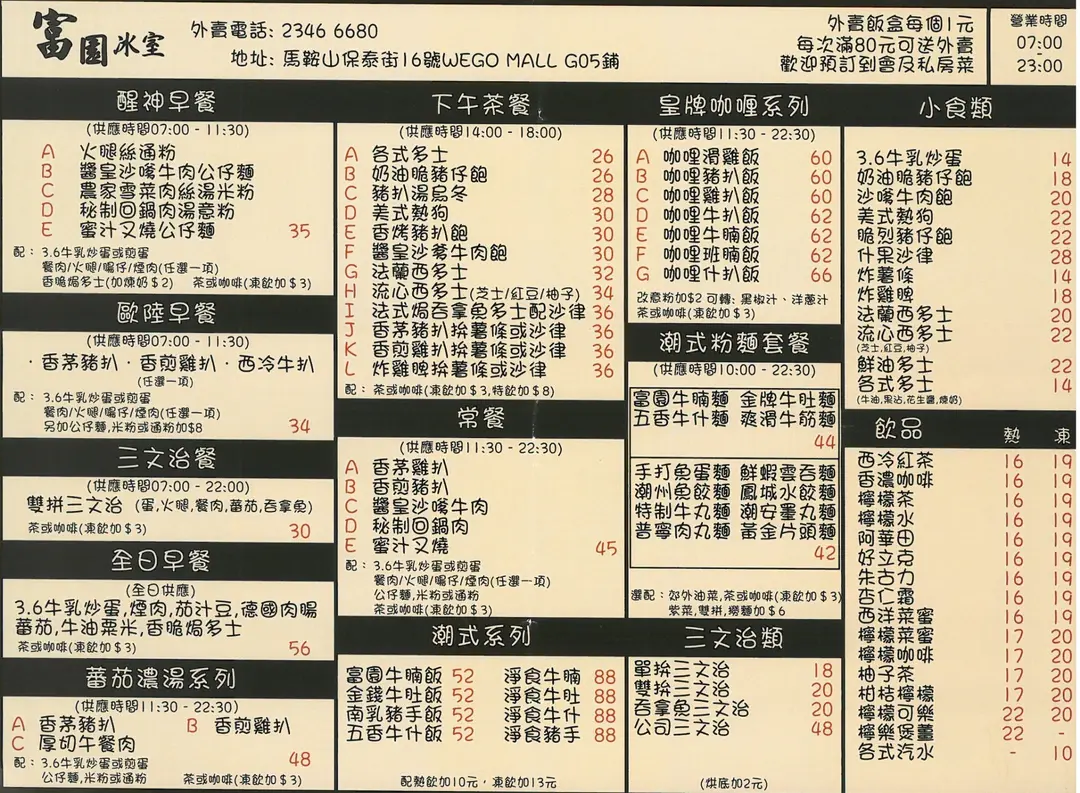 富園冰室
外賣電話: 2346 6680
地址: 馬鞍山保泰街16號WEGO MALL G05鋪
外賣飯盒每個1元
每次滿80元可送外賣
歡迎預訂到會及私房菜
營業時間
07:00
-
23:00
醒神早餐
(供應時間07:00 - 11:30)
A 火腿絲通粉
B 醬皇沙嗲牛肉公仔麵
C 農家雪菜肉絲湯米粉
D 秘制回鍋肉湯意粉
E 蜜汁叉燒公仔麵 35
配: 3.6牛乳炒蛋或煎蛋
餐肉/火腿/腸仔/煙肉(任選一項)
香脆焗多士(加煉奶$2) 茶或咖啡(凍飲加$3)
歐陸早餐
(供應時間07:00 - 11:30)
·香茅豬扒·香煎雞扒·西冷牛扒
(任選一項)
配: 3.6牛乳炒蛋或煎蛋
餐肉/火腿/腸仔/煙肉(任選一項)
另加公仔麵,米粉或通粉加$8 34
三文治餐
(供應時間07:00 - 22:00)
雙拼三文治 (蛋,火腿,餐肉,蕃茄,吞拿魚)
茶或咖啡(凍飲加$3) 30
全日早餐
(全日供應)
3.6牛乳炒蛋,煙肉,茄汁豆,德國肉腸
蕃茄,牛油粟米,香脆焗多士
茶或咖啡(凍飲加$3) 56
蕃茄濃湯系列
(供應時間11:30 - 22:30)
A 香茅豬扒 B 香煎雞扒
C 厚切午餐肉 48
配: 3.6牛乳炒蛋或煎蛋
公仔麵,米粉或通粉 茶或咖啡(凍飲加$3)
下午茶餐
(供應時間14:00 - 18:00)
A 各式多士 26
B 奶油脆豬仔飽 26
C 豬扒湯烏冬 28
D 美式熱狗 30
E 香烤豬扒飽 30
F 醬皇沙嗲牛肉飽 30
G 法蘭西多士 32
H 流心西多士(芝士/紅豆/柚子) 34
I 法式焗吞拿魚多士配沙律 36
J 香茅豬扒拚薯條或沙律 36
K 香煎雞扒拚薯條或沙律 36
L 炸雞脾拚薯條或沙律 36
配: 茶或咖啡(凍飲加$3,特飲加$8)
常餐
(供應時間11:30 - 22:30)
A 香茅雞扒
B 香煎豬扒
C 醬皇沙嗲牛肉
D 秘制回鍋肉
E 蜜汁叉燒 45
配: 3.6牛乳炒蛋或煎蛋
餐肉/火腿/腸仔/煙肉(任選一項)
公仔麵,米粉或通粉
茶或咖啡(凍飲加$3)
潮式系列
富園牛腩飯 52 淨食牛腩 88
金錢牛肚飯 52 淨食牛肚 88
南乳豬手飯 52 淨食牛什 88
五香牛什飯 52 淨食豬手 88
配熱飲加10元，凍飲加13元
皇牌咖喱系列
(供應時間11:30 - 22:30)
A 咖哩滑雞飯 60
B 咖哩豬扒飯 60
C 咖哩雞扒飯 60
D 咖哩牛扒飯 62
E 咖哩牛腩飯 62
F 咖哩班腩飯 62
G 咖哩什扒飯 66
改意粉加$2 可轉: 黑椒汁、洋蔥汁
茶或咖啡(凍飲加$3)
潮式粉麵套餐
(供應時間10:00 - 22:30)
富園牛腩麵 金牌牛肚麵
五香牛什麵 爽滑牛筋麵
44
手打魚蛋麵 鮮蝦雲吞麵
潮州魚餃麵 鳳城水餃麵
特制牛丸麵 潮安墨丸麵
普寧肉丸麵 黃金片頭麵
42
選配: 郊外油菜,茶或咖啡(凍飲加$3)
紫菜,雙拼,撈麵加$6
三文治類
單拚三文治 18
雙拚三文治 20
吞拿魚三文治 20
公司三文治 48
(烘底加2元)
小食類
3.6牛乳炒蛋 14
奶油脆豬仔飽 18
沙嗲牛肉飽 20
美式熱狗 22
脆烈豬仔飽 22
什果沙律 28
炸薯條 14
炸雞脾 18
法蘭西多士 20
流心西多士 22
(芝士,紅豆,柚子)
鮮油多士 22
各式多士 14
(牛油,果沾,花生醬,煉奶)
飲品 熱 凍
西冷紅茶 16 19
香濃咖啡 16 19
檸檬茶 16 19
檸檬水 16 19
阿華田 16 19
好立克 16 19
朱古力 16 19
杏仁霜 16 19
西洋菜蜜 16 19
檸檬菜蜜 17 20
檸檬咖啡 17 20
柚子茶 17 20
柑桔檸檬 17 20
檸檬可樂 22 20
檸樂煲薑 22 -
各式汽水 - 10